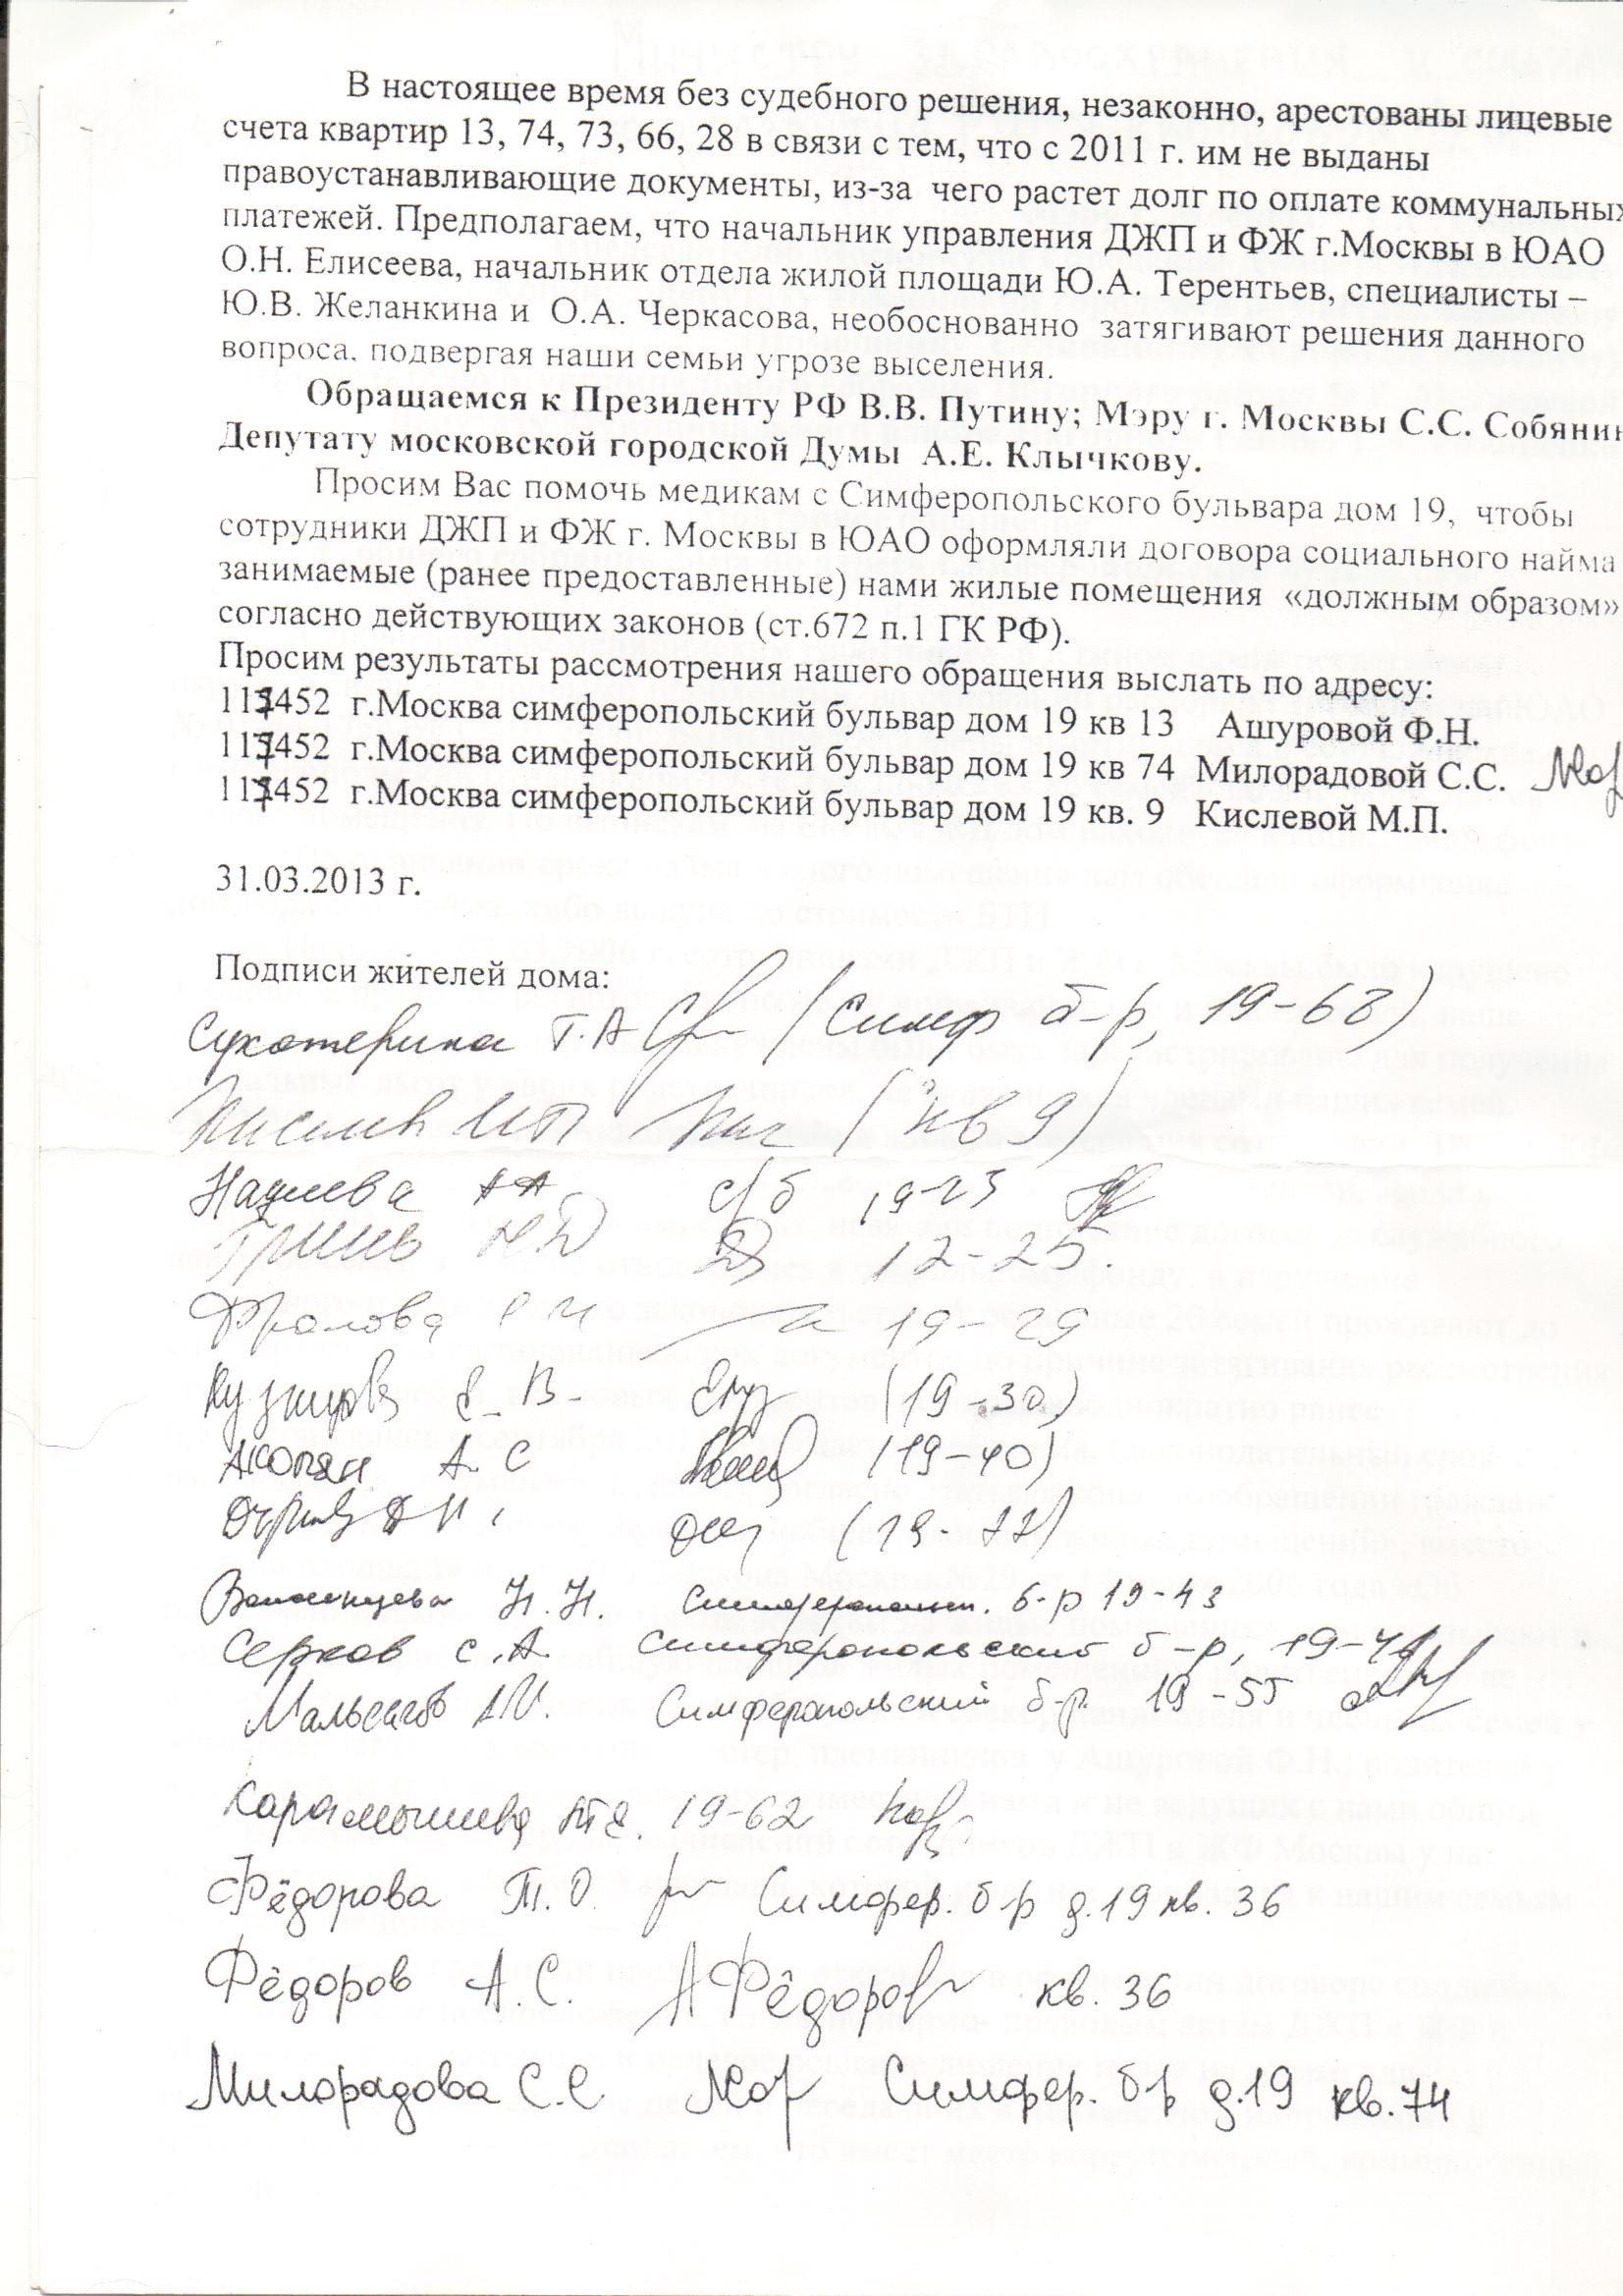 В настоящее время без судебного решения, незаконно, арестованы лицевые
счета квартир 13, 74, 73, 66, 28 в связи с тем, что с 2011 г. им не выданы
правоустанавливающие документы, из-за чего растет долг по оплате коммунальных
платежей. Предполагаем, что начальник управления ДЖП и ФЖ г.Москвы в ЮАО
О.Н. Елисеева, начальник отдела жилой площади Ю.А. Терентьев, специалисты –
Ю.В. Желанкина и О.А. Черкасова, необоснованно затягивают решения данного
вопроса, подвергая наши семьи угрозе выселения.
Обращаемся к Президенту РФ В.В. Путину; Мэру г. Москвы С.С. Собянин
Депутату московской городской Думы А.Е. Клычкову.
Просим Вас помочь медикам с Симферопольского бульвара дом 19, чтобы
сотрудники ДЖП и ФЖ г. Москвы в ЮАО оформляли договора социального найма
занимаемые (ранее предоставленные) нами жилые помещения «должным образом»
согласно действующих законов (ст.672 п.1 ГК РФ).
Просим результаты рассмотрения нашего обращения выслать по адресу:
117452 г.Москва симферопольский бульвар дом 19 кв 13 Ашуровой Ф.Н.
117452 г.Москва симферопольский бульвар дом 19 кв 74 Милорадовой С.С.
117452 г.Москва симферопольский бульвар дом 19 кв. 9 Кислевой М.П.
31.03.2013 г.
Подписи жителей дома:
Сухотерина Т.А (Симф б-р, 19-68)
(кв 9)
19-23
12-25.
Фролова 19-29
Е. В. (19-30)
Акопян А.С (19-40)
(19-77)
Н.Н. б-р 19-43
Серков С.А. Симферопольский б-р, 19-
Симферопольский б-р. 19-55
Карамышева 19-62
Фёдорова Т.О. Симфер. б-р д.19 кв. 36
Фёдоров А.С. АФёдоров кв. 36
Милорадова С.С Симфер. б-р д.19 кв.74